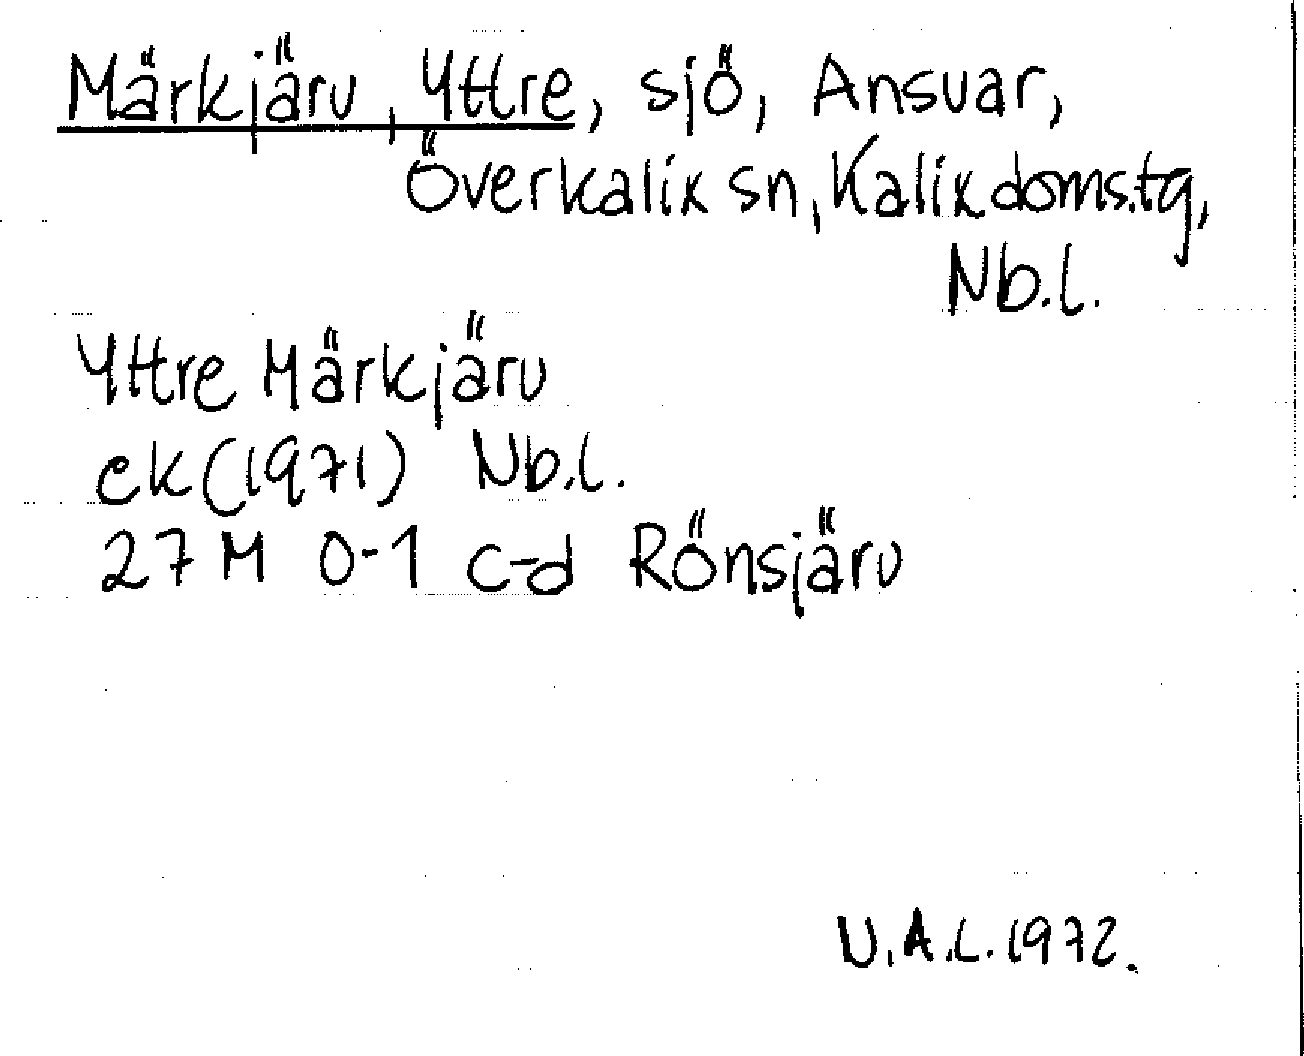 Märkjärv, Yttre, sjö, Ansvar,
Överkalix sn, Kalix doms.tg,
Nb.l.
Yttre Märkjärv
ek (1971) Nb.l.
27 M 0-1 c-d Rönsjärv
U.A.L. 1972.